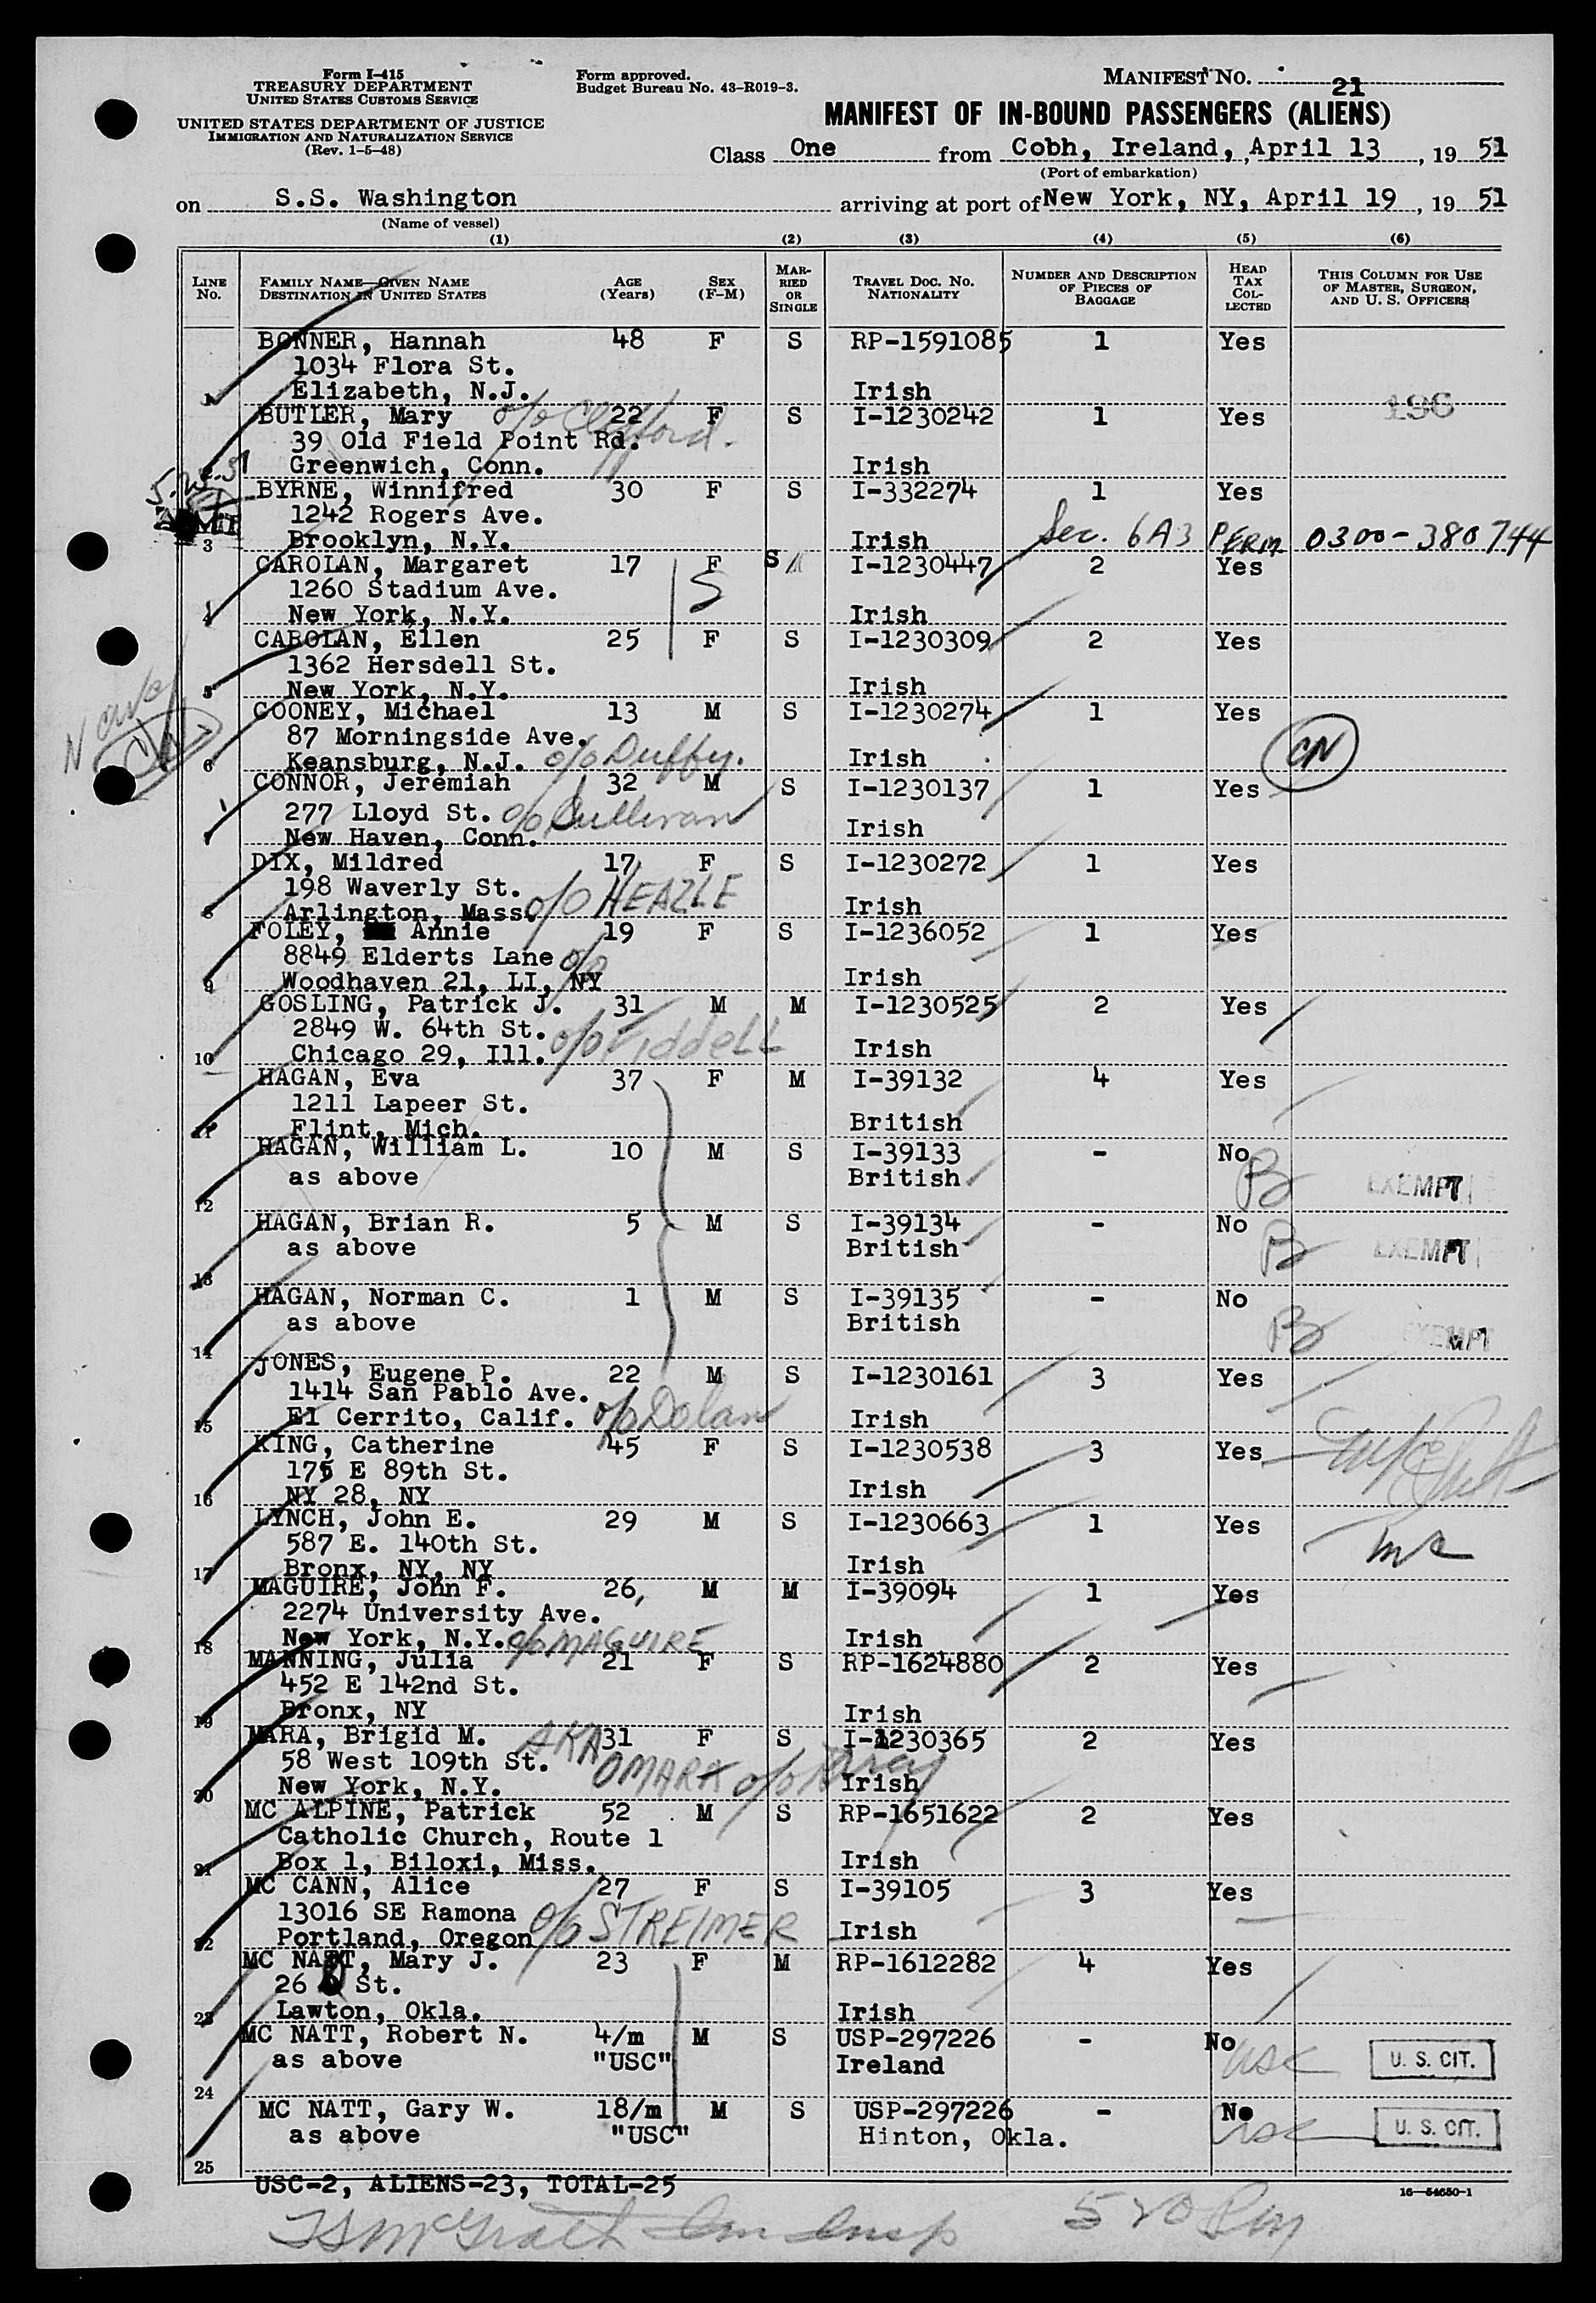 Form I-415
TREASURY DEPARTMENT
UNITED STATES CUSTOMS SERVICE
UNITED STATES DEPARTMENT OF JUSTICE
IMMIGRATION AND NATURALIZATION SERVICE
(Rev. 1-5-48)
Form approved.
Budget Bureau No. 43-R019-3.
MANIFEST NO. 21
MANIFEST OF IN-BOUND PASSENGERS (ALIENS)
Class One from Cobh, Ireland, April 13, 1951
(Port of embarkation)
on S.S. Washington arriving at port of New York, NY, April 19, 1951
(Name of vessel)
(1) (2) (3) (4) (5) (6)
LINE NO. FAMILY NAME—GIVEN NAME DESTINATION IN UNITED STATES AGE (Years) SEX (F-M) MARRIED OR SINGLE TRAVEL DOC. NO. NATIONALITY NUMBER AND DESCRIPTION OF PIECES OF BAGGAGE HEAD TAX COLLECTED THIS COLUMN FOR USE OF MASTER, SURGEON, AND U. S. OFFICERS
BONNER, Hannah 48 F S RP-1591085 1 Yes
1034 Flora St.
1 Elizabeth, N.J. Irish
BUTLER, Mary c/o Clifford. 22 F S I-1230242 1 Yes 196
39 Old Field Point Rd.
2 Greenwich, Conn. Irish
5-25-51
BYRNE, Winnifred 30 F S I-332274 1 Yes
1242 Rogers Ave.
3 Brooklyn, N.Y. Irish Sec. 6A3 PERM 0300-380744
CAROLAN, Margaret 17 F S I-1230447 2 Yes
1260 Stadium Ave.
4 New York, N.Y. Irish
CAROLAN, Ellen 25 F S I-1230309 2 Yes
1362 Hersdell St.
5 New York, N.Y. Irish
COONEY, Michael 13 M S I-1230274 1 Yes
87 Morningside Ave.
6 Keansburg, N.J. c/o Duffy. Irish CN
CONNOR, Jeremiah 32 M S I-1230137 1 Yes
277 Lloyd St. c/o Sullivan
7 New Haven, Conn. Irish
DIX, Mildred 17 F S I-1230272 1 Yes
198 Waverly St.
8 Arlington, Mass. c/o HEAZLE Irish
FOLEY, Annie 19 F S I-1236052 1 Yes
8849 Elderts Lane c/o
9 Woodhaven 21, LI, NY Irish
GOSLING, Patrick J. 31 M M I-1230525 2 Yes
2849 W. 64th St.
10 Chicago 29, Ill. c/o FiddeLL Irish
HAGAN, Eva 37 F M I-39132 4 Yes
1211 Lapeer St.
11 Flint, Mich. British
HAGAN, William L. 10 M S I-39133 - No
as above British B EXEMPT
12
HAGAN, Brian R. 5 M S I-39134 - No
as above British B EXEMPT
13
HAGAN, Norman C. 1 M S I-39135 - No
as above British B EXEMPT
14
JONES, Eugene P. 22 M S I-1230161 3 Yes
1414 San Pablo Ave.
15 El Cerrito, Calif. c/o Dolan Irish
KING, Catherine 45 F S I-1230538 3 Yes
175 E 89th St.
16 NY 28, NY Irish
LYNCH, John E. 29 M S I-1230663 1 Yes
587 E. 140th St.
17 Bronx, NY, NY Irish
MAGUIRE, John F. 26 M M I-39094 1 Yes
2274 University Ave.
18 New York, N.Y. c/o MAGUIRE Irish
MANNING, Julia 21 F S RP-1624880 2 Yes
452 E 142nd St.
19 Bronx, NY Irish
MARA, Brigid M. AKA 31 F S I-1230365 2 Yes
58 West 109th St. OMARA c/o
20 New York, N.Y. Irish
MC ALPINE, Patrick 52 M S RP-1651622 2 Yes
Catholic Church, Route 1
21 Box 1, Biloxi, Miss. Irish
MC CANN, Alice 27 F S I-39105 3 Yes
13016 SE Ramona
22 Portland, Oregon c/o STREIMER Irish
MC NATT, Mary J. 23 F M RP-1612282 4 Yes
26 St.
23 Lawton, Okla. Irish
MC NATT, Robert N. 4/m M S USP-297226 - No
as above "USC" Ireland usc U. S. CIT.
24
MC NATT, Gary W. 18/m M S USP-297226 - No
as above "USC" Hinton, Okla. usc U. S. CIT.
25
USC-2, ALIENS-23, TOTAL-25
16—54650-1
TSMcGrath Imm Insp 520 Pm